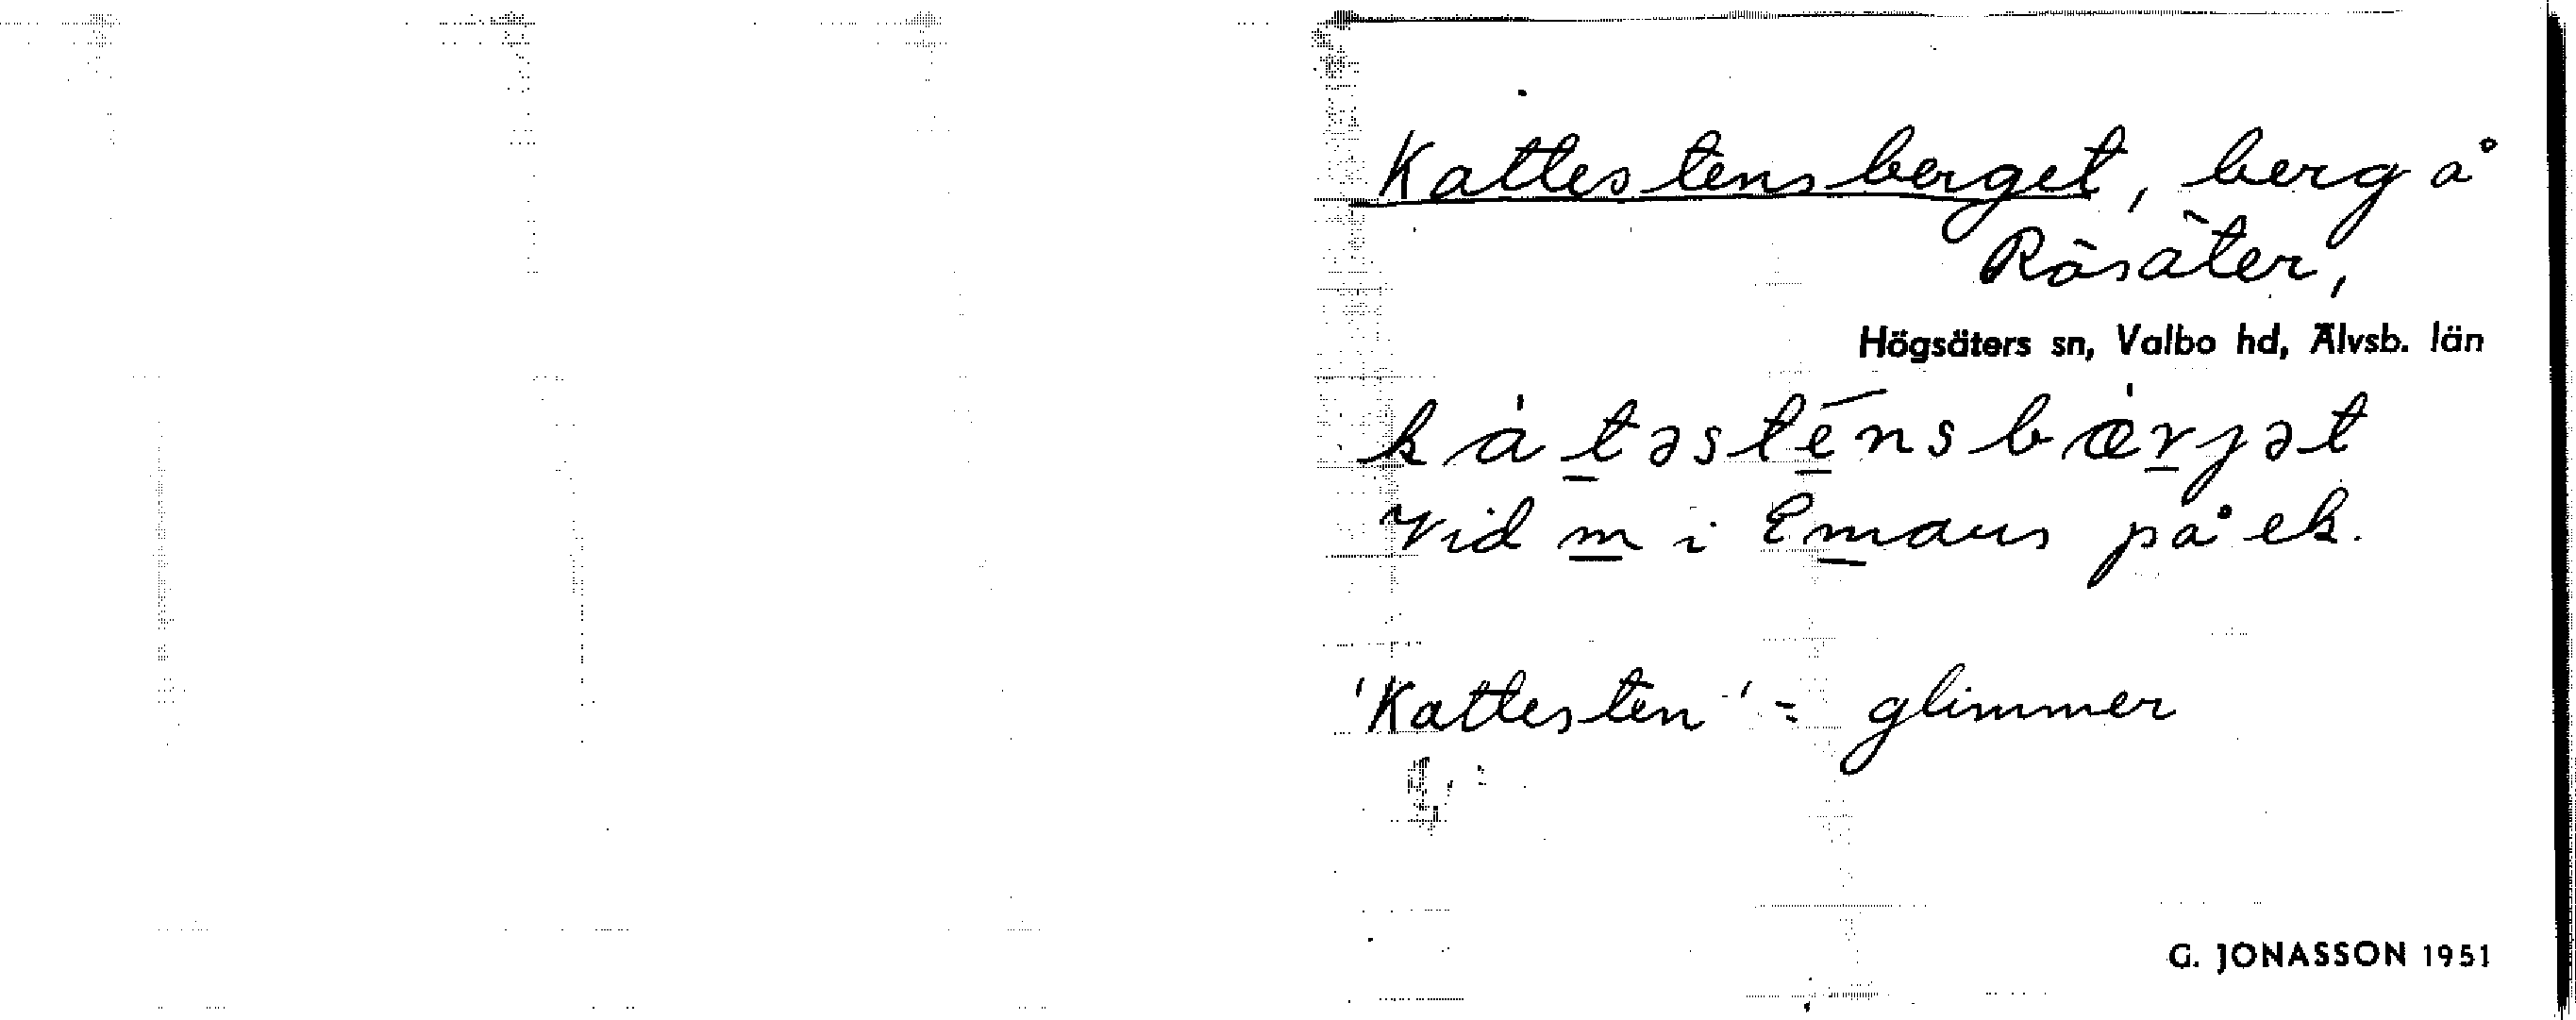 Kattestensberget, berg å
Rösäter,
Högsäters sn, Valbo hd, Älvsb. län
kàtəstēnsbærjət
Vid m i Emaus på ek.
'Kattesten' = glimmer
G. JONASSON 1951